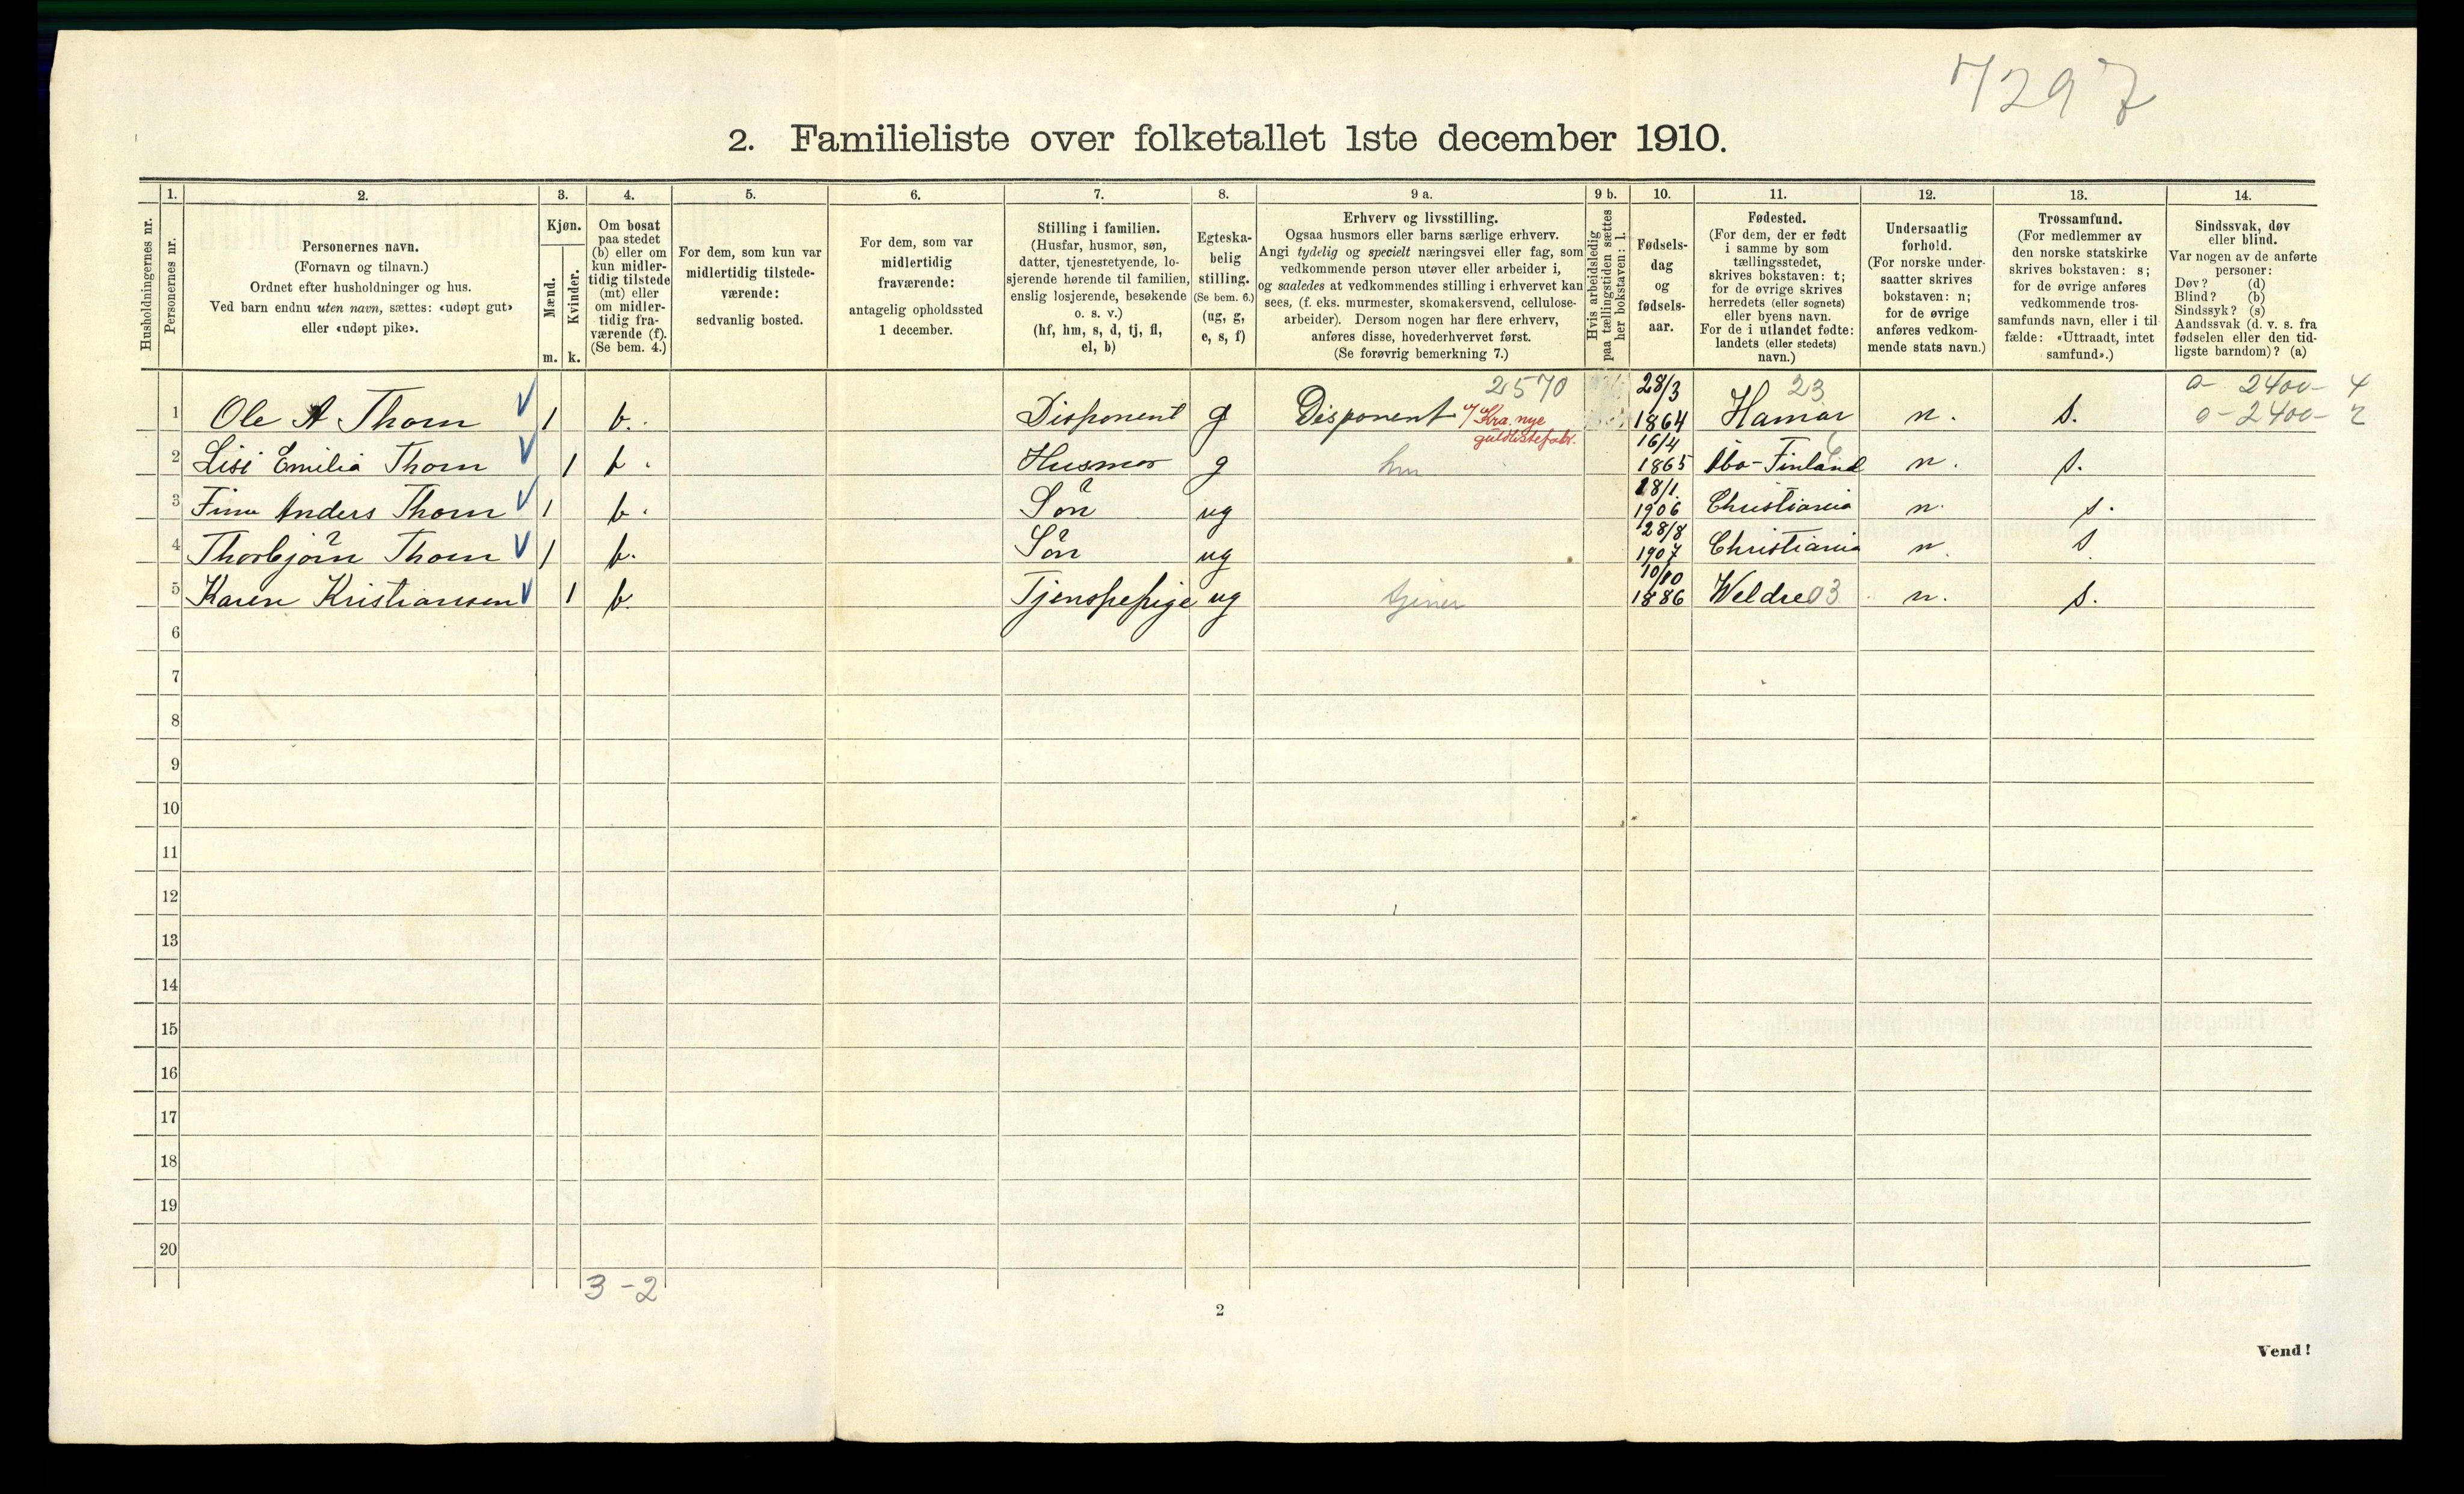 7297
2. Familieliste over folketallet 1ste december 1910.
Husholdningernes nr.
1.
Personernes nr.
2.
Personernes navn.
(Fornavn og tilnavn.)
Ordnet efter husholdninger og hus.
Ved barn endnu uten navn, sættes: «udøpt gut»
eller «udøpt pike».
3.
Kjøn.
Mænd.
Kvinder.
m. k.
4.
Om bosat
paa stedet
(b) eller om
kun midler-
tidig tilstede
(mt) eller
om midler-
tidig fra-
værende (f).
(Se bem. 4.)
5.
For dem, som kun var
midlertidig tilstede-
værende:
sedvanlig bosted.
6.
For dem, som var
midlertidig
fraværende:
antagelig opholdssted
1 december.
7.
Stilling i familien.
(Husfar, husmor, søn,
datter, tjenestetyende, lo-
sjerende hørende til familien,
enslig losjerende, besøkende
o. s. v.)
(hf, hm, s, d, tj, fl,
el, b)
8.
Egteska-
belig
stilling.
(Se bem. 6.)
(ug, g,
e, s, f)
9 a.
Erhverv og livsstilling.
Ogsaa husmors eller barns særlige erhverv.
Angi tydelig og specielt næringsvei eller fag, som
vedkommende person utøver eller arbeider i,
og saaledes at vedkommendes stilling i erhvervet kan
sees, (f. eks. murmester, skomakersvend, cellulose-
arbeider). Dersom nogen har flere erhverv,
anføres disse, hovederhvervet først.
(Se forøvrig bemerkning 7.)
9 b.
Hvis arbeidsledig
paa tællingstiden sættes
her bokstaven: l.
10.
Fødsels-
dag
og
fødsels-
aar.
11.
Fødested.
(For dem, der er født
i samme by som
tællingsstedet,
skrives bokstaven: t;
for de øvrige skrives
herredets (eller sognets)
eller byens navn.
For de i utlandet fødte:
landets (eller stedets)
navn.)
12.
Undersaatlig
forhold.
(For norske under-
saatter skrives
bokstaven: n;
for de øvrige
anføres vedkom-
mende stats navn.)
13.
Trossamfund.
(For medlemmer av
den norske statskirke
skrives bokstaven: s;
for de øvrige anføres
vedkommende tros-
samfunds navn, eller i til-
fælde: «Uttraadt, intet
samfund».)
14.
Sindssvak, døv
eller blind.
Var nogen av de anførte
personer:
Døv? (d)
Blind? (b)
Sindssyk? (s)
Aandssvak (d. v. s. fra
fødselen eller den tid-
ligste barndom)? (a)
2570 28/3 23 o- 2400- 4
1 Ole A Thorn 1 b. Disponent g Disponent v/ Kra. nye 1864 Hamar n. s. o- 2400- 2
guldlistefabr.
16/4 6
2 Lisi Emilia Thorn 1 b. Husmor g hm 1865 Åbo-Finland n. s.
28/1
3 Finn Anders Thorn 1 b. Sön ug 1906 Christiania n. s.
28/8
4 Thorbjörn Thorn 1 b. Sön ug 1907 Christiania n. s
10/10
5 Karen Kristiansen 1 b. Tjenstepige ug tjener 1886 Weldre 03 n. s.
6
7
8
9
10
11
12
13
14
15
16
17
18
19
20
3 - 2
2
Vend!